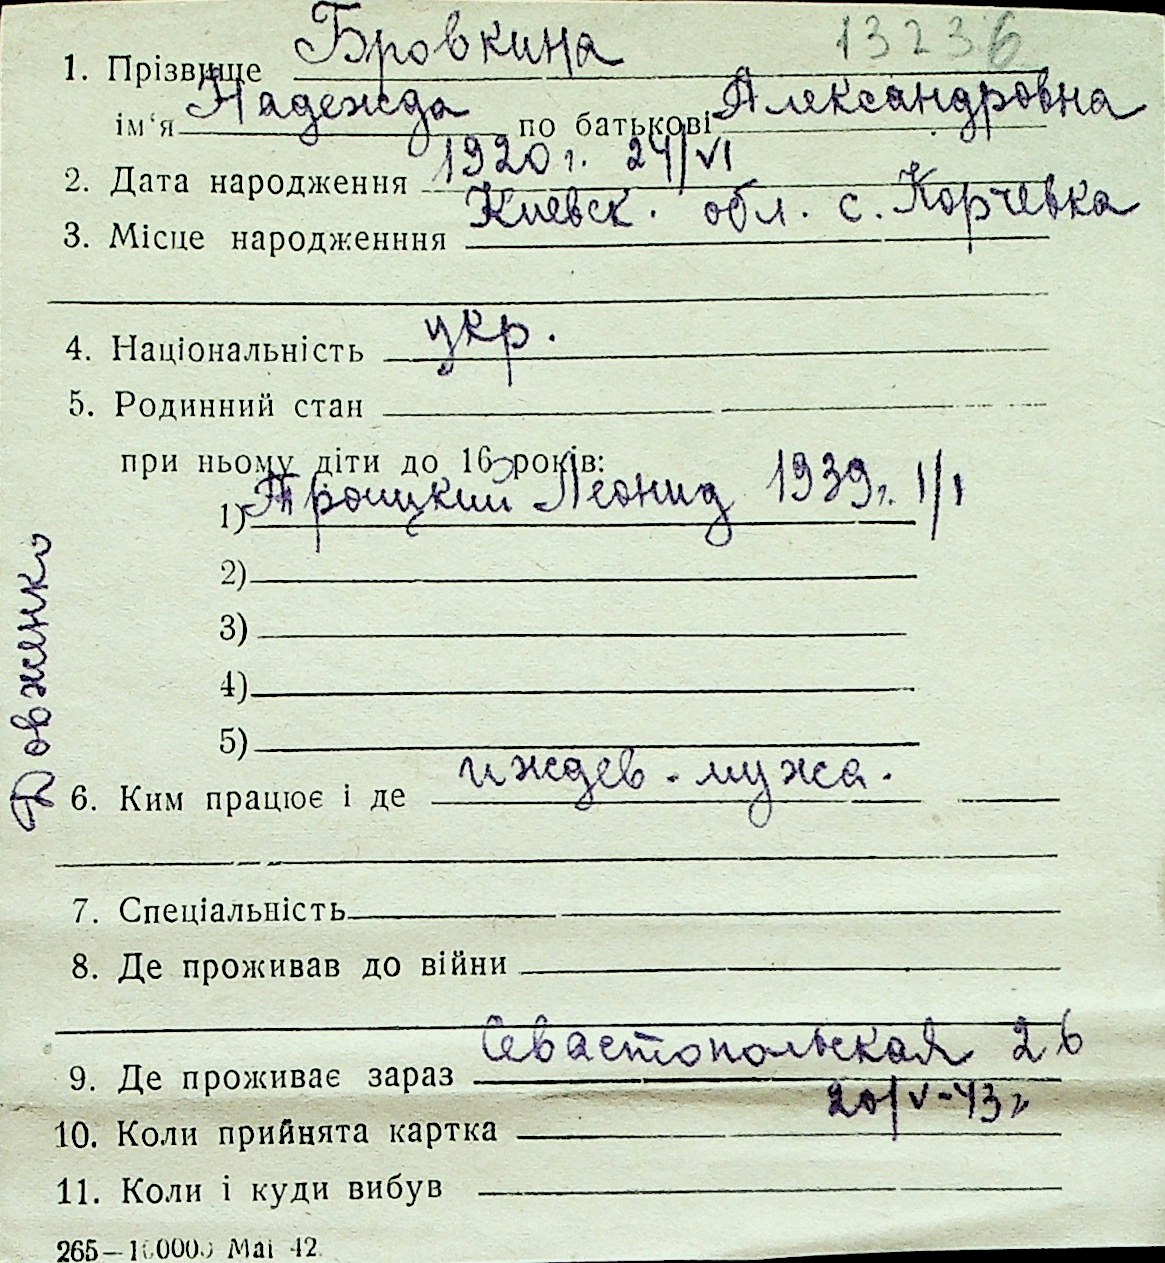 13236
1. Прізвище Бровкина
ім'я Надежда по батькові Александровна
2. Дата народження 1920 г. 24/VI
3. Місце народженння Киевск. обл. с. Корчевка
4. Національність укр.
5. Родинний стан
при ньому діти до 16 років:
1) Троицкий Леонид 1939 г. 1/I
2)
3)
4)
5)
6. Ким працює і де иждев. мужа.
7. Спеціальність
8. Де проживав до війни
9. Де проживає зараз Севастопольская 26
10. Коли прийнята картка 20/V-43 г
11. Коли і куди вибув
265— Mai 42
Довженко